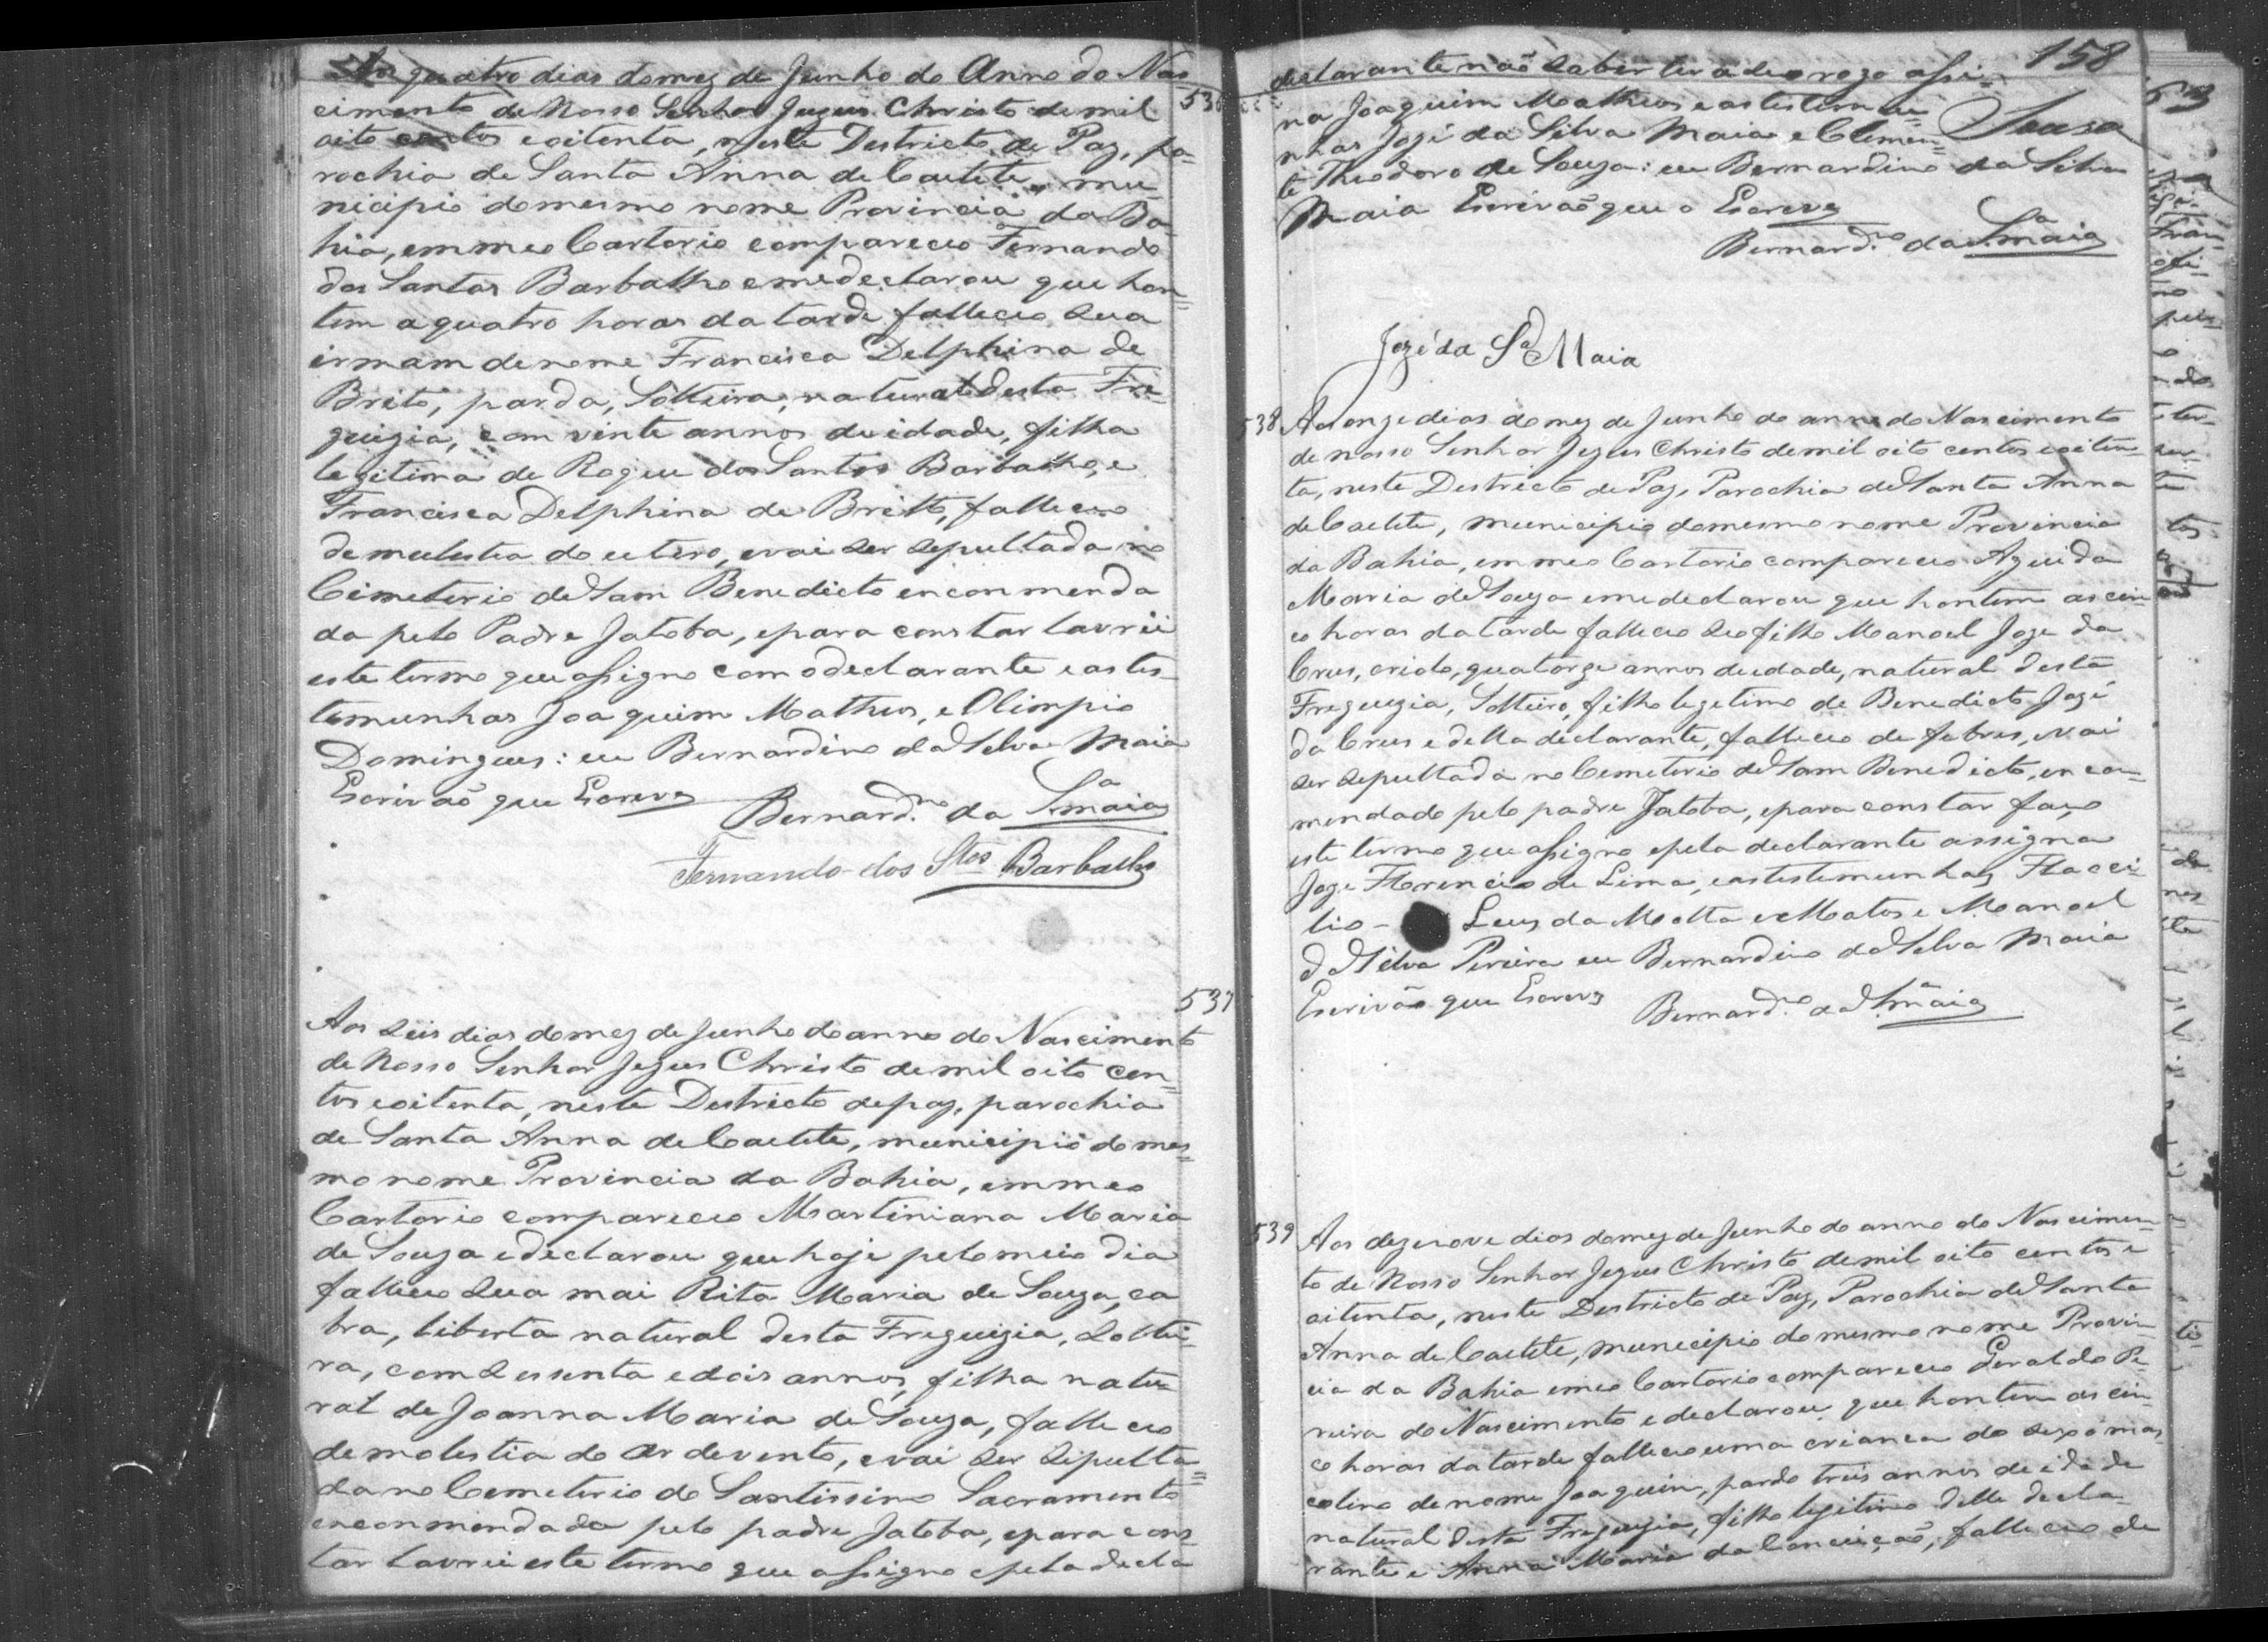 Aos quatro dias do mez de Junho do Anno do Nas
cimento de Nosso Senhor Jezus Christo de mil
536
oito centos e oitenta, neste Destricto de Paz, pa-
rochia de Santa Anna de Caetete, mu
nicipio do mesmo nome Provincia da Ba-
hia, em meo Cartorio compareceo Fernando
dos Santos Barbalho e me declarou que hon=
tem a quatro horas da tarde falleceo sua
irmam de nome Francisca Delphina de
Brito, parda, Solteira, natural desta Fre-
guizia, com vinte annos de idade, filha
legitima de Roque dos Santos Barbalho, e
Francisca Delphina de Britto, falleceo
de mulestia do utero, e vai ser sepultada no
Cimeterio de Sam Benedicto enconmenda
da pelo Padre Jatoba, e para constar lavrei
este termo que assigno com o declarante e as tes-
temunhas Joaquim Matheus, e Olimpio
Domingues: eu Bernardino da Silva Maia
Escrivaõ que Escrevy
Bernard.no da S.a Maia
Fernando dos Stos Barbalho
537
Aos seis dias do mez de Junho do anno do Nascimento
de Nosso Senhor Jezus Christo de mil oito cen=
tos e oitenta, neste Destricto de paz, parochia
de Santa Anna de Caetete, municipio do mes=
mo nome Provincia da Bahia, em meo
Cartorio compareceo Martiniana Maria
de Souza e declarou que hoje pelo meio dia
falleceo sua mai Rita Maria de Souza, ca
bra, liberta natural desta Freguizia, Soltei-
ra, com sessenta e dois annos, filha natu-
ral de Joanna Maria de Souza, falleceo
de molestia do ar de vento, e vai ser sipulta=
da no Cemeterio do Santissimo Sacramento
enconmendada pelo padre Jatoba, e para cons-
tar lavrei este termo que assigno e pela decla
158
declarante naõ saber ler a seo rogo assi-
na Joaquim Matheus e as testemu=
nhas Jozé da Silva Maia e Clemen=
Souza
te Theodoro de Souza: eu Bernardino da Silva
Maia Escrivaõ que o Escrevy
Bernard.no da S.a Maia
Jozé da S.a Maia
538
Aos onze dias do mez de Junho do anno do Nascimento
de nosso Senhor Jezus Christo de mil oito centos e oiten-
ta, neste Destricto de Paz, Parochia de Santa Anna
de Caetete, municipio do mesmo nome Provincia
da Bahia, em meo Cartorio compareceo Aguida
Maria de Souza e me declarou que hontem as cin-
co horas da tarde falleceo seo filho Manoel Joze da
Crus, criolo, quatorze annos de edade, natural desta
Freguezia, Solteiro, filho legetimo de Benedicto Jozé
da Crus e della declarante, falleceo de febres, e vai
ser sepultada no Cemeterio de Sam Benedicto, enco-
mendado pelo padre Jatoba, e para constar faço
este termo que assigno e pela declarante assigna
Joze Florencio de Lima, e as testemunhas Flacci-
lio - Luis da Motta e Matos e Manoel
da Silva Pereira eu Bernardino da Silva Maia
Escrivão que Escrevy
Bernard.no da S.a Maia
539
Aos dezenove dias do mez de Junho do anno do Nascimen-
to de Nosso Senhor Jezus Christo de mil oito centos e
oitenta, neste Destricto de Paz, Parochia de Santa
Anna de Caetete, municipio do mesmo nome Provin-
cia da Bahia em meo Cartorio compareceo Geraldo Pe-
reira do Nascimento e declarou que hontem as cin-
co horas da tarde falleceo uma crianca do sexo mas-
colino de nome Joaquim, pardo tres annos de idade
natural desta Freguezia, filho legitimo delle decla-
rante e Anna Maria da Conceição, falleceo de